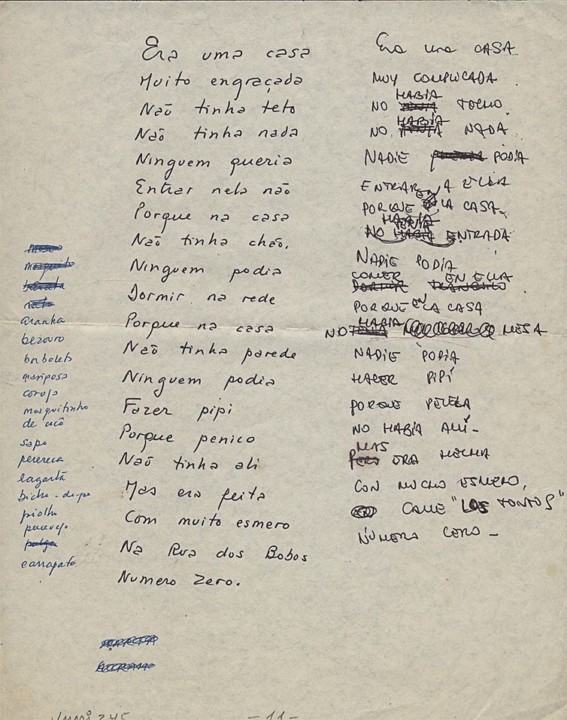 Era uma casa
Muito engraçada
Não tinha teto
Não tinha nada
Ninguem queria
Entrar nela não
Porque na casa
Não tinha chão.
Ninguem podia
Dormir na rede
Porque na casa
Não tinha parede
Ninguem podia
Fazer pipi
Porque penico
Não tinha ali
Mas era feita
Com muito esmero
Na Rua dos Bobos
Numero Zero.
Era una CASA
MUY COMPLICADA
HABÍA
NO TECHO
HABÍA
NO NADA
NADIE PODÍA
ENTRAR A ELLA
PORQUE EN LA CASA
NO HABÍA ENTRADA
NADIE PODÍA
COMER EN ELLA
PORQUE EN LA CASA
NO HABÍA MESA
NADIE PODÍA
HACER PIPÍ
PORQUE
NO HABÍA AHÍ-
MAS
PERO ERA HECHA
CON MUCHO ESMERO,
CALLE "LOS TONTOS"
NÚMERO CERO-
mosquito
aranha
bezouro
borboleta
mariposa
coruja
mosquitinho
de
sapo
perereca
lagarta
bicho-de-pé
piolho
percevejo
pulga
carrapato
-11-